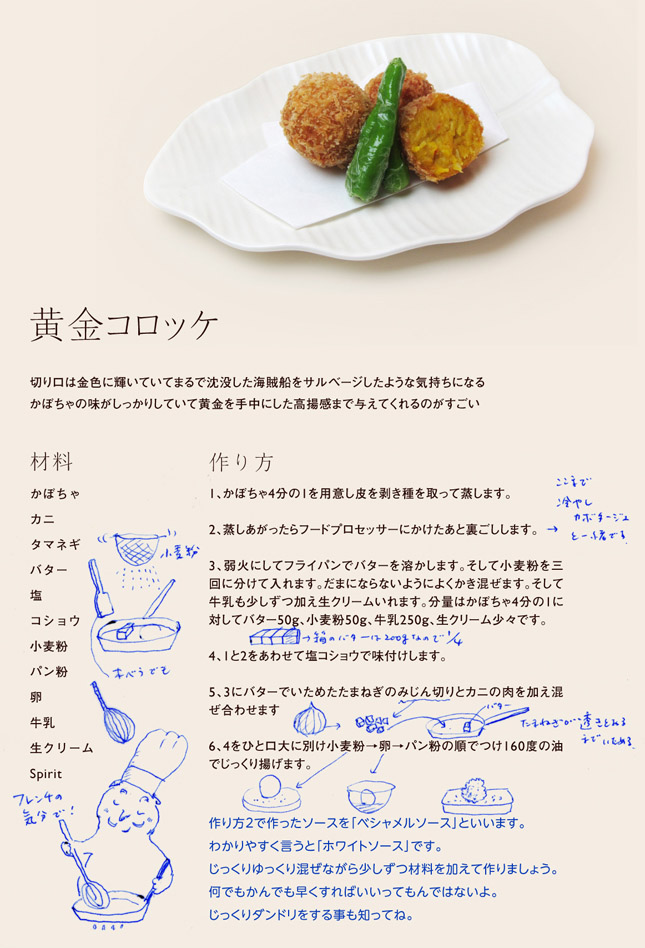 黄金コロッケ
切り口は金色に輝いていてまるで沈没した海賊船をサルベージしたような気持ちになる
かぼちゃの味がしっかりしていて黄金を手中にした高揚感まで与えてくれるのがすごい
材料
かぼちゃ
カニ
タマネギ
バター
塩
コショウ
小麦粉
パン粉
卵
牛乳
生クリーム
Spirit
小麦粉
木べらでも
フレンチの
気分で!
作り方
1、かぼちゃ4分の1を用意し皮を剥き種を取って蒸します。
2、蒸しあがったらフードプロセッサーにかけたあと裏ごしします。
→
ここまで
冷やし
カボチャージュ
と一緒です
3、弱火にしてフライパンでバターを溶かします。そして小麦粉を三
回に分けて入れます。だまにならないようによくかき混ぜます。そして
牛乳も少しずつ加え生クリームいれます。分量はかぼちゃ4分の1に
対してバター50g、小麦粉50g、牛乳250g、生クリーム少々です。
→箱のバターは200gなので1/4
4、1と2をあわせて塩コショウで味付けします。
5、3にバターでいためたたまねぎのみじん切りとカニの肉を加え混
ぜ合わせます
バター
たまねぎが透きとおる
までいためる
6、4をひと口大に別け小麦粉→卵→パン粉の順でつけ160度の油
でじっくり揚げます。
作り方2で作ったソースを「ベシャメルソース」といいます。
わかりやすく言うと「ホワイトソース」です。
じっくりゆっくり混ぜながら少しずつ材料を加えて作りましょう。
何でもかんでも早くすればいいってもんではないよ。
じっくりダンドリをする事も知ってね。